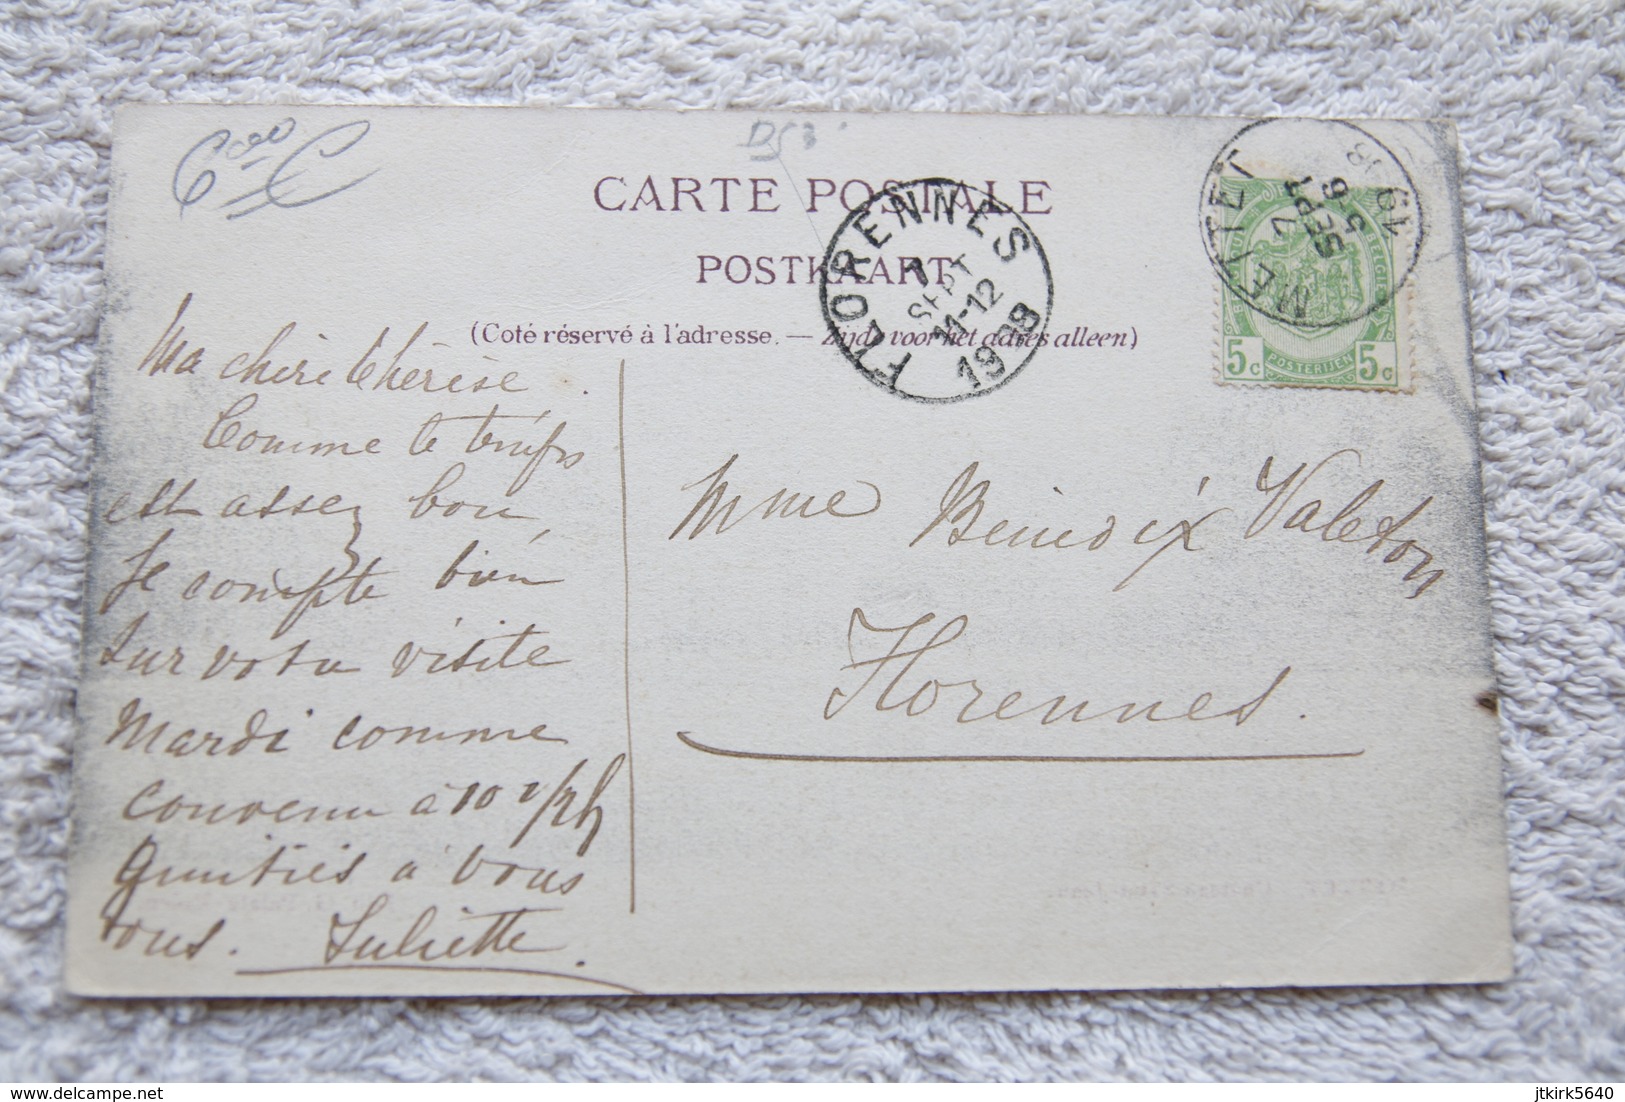 CARTE POSTALE
POSTKAART
(Coté réservé à l'adresse. — Zijde voor het adres alleen)
FLORENNES
7
SEPT
11-12
1908
METTET
7
SEPT
5
19 08
5c POSTERIJEN 5c
Ma chéri thérèse.
Comme le temps
est assez bon,
Je compte bien
Sur votre visite
Mardi comme
convenu à 10 1/2 h
amitiés à vous
tous. Juliette.
Mme Benedix Valeton
Florennes.
delcampe.net
jtkirk5640